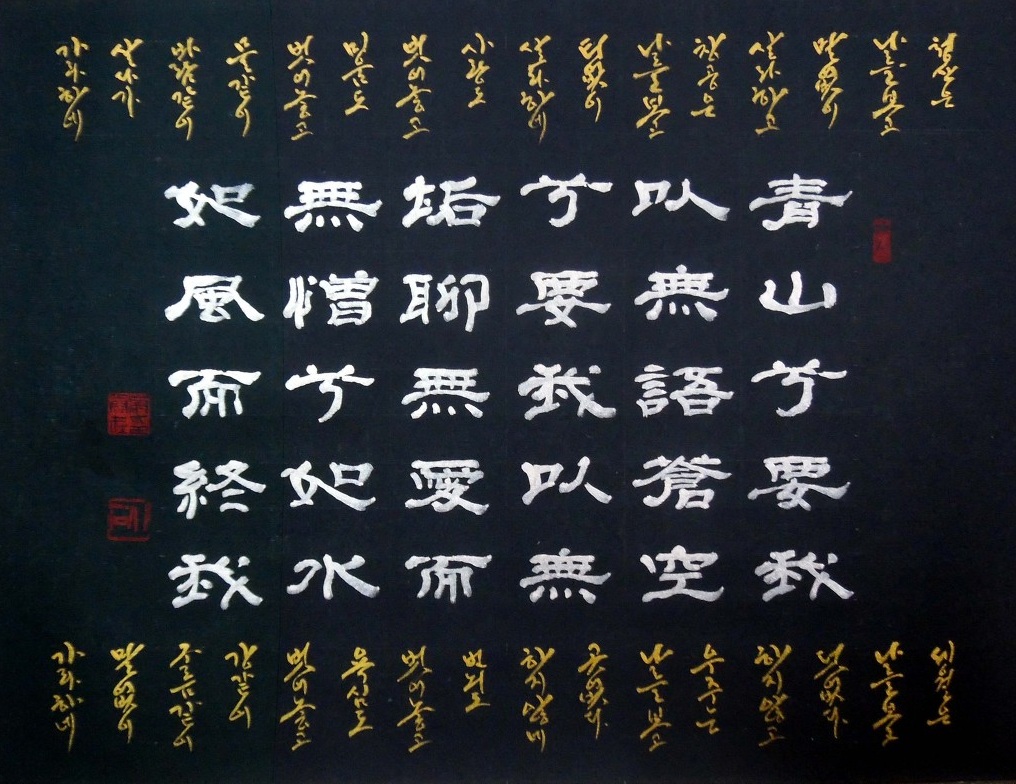 청산은
나를보고
말없이
살라하고
창공은
나를보고
티없이
살라하네
사랑도
벗어놓고
미움도
벗어놓고
물같이
바람같이
살다가
가라하네
青山兮要我
以無語蒼空
兮要我以無
垢聊無愛而
無憎兮如水
如風而終我
세월은
나를보고
덧없다
하지않고
우주는
나를보고
곳없다
하지않네
번뇌도
벗어놓고
욕심도
벗어놓고
강같이
구름같이
말없이
가라하네